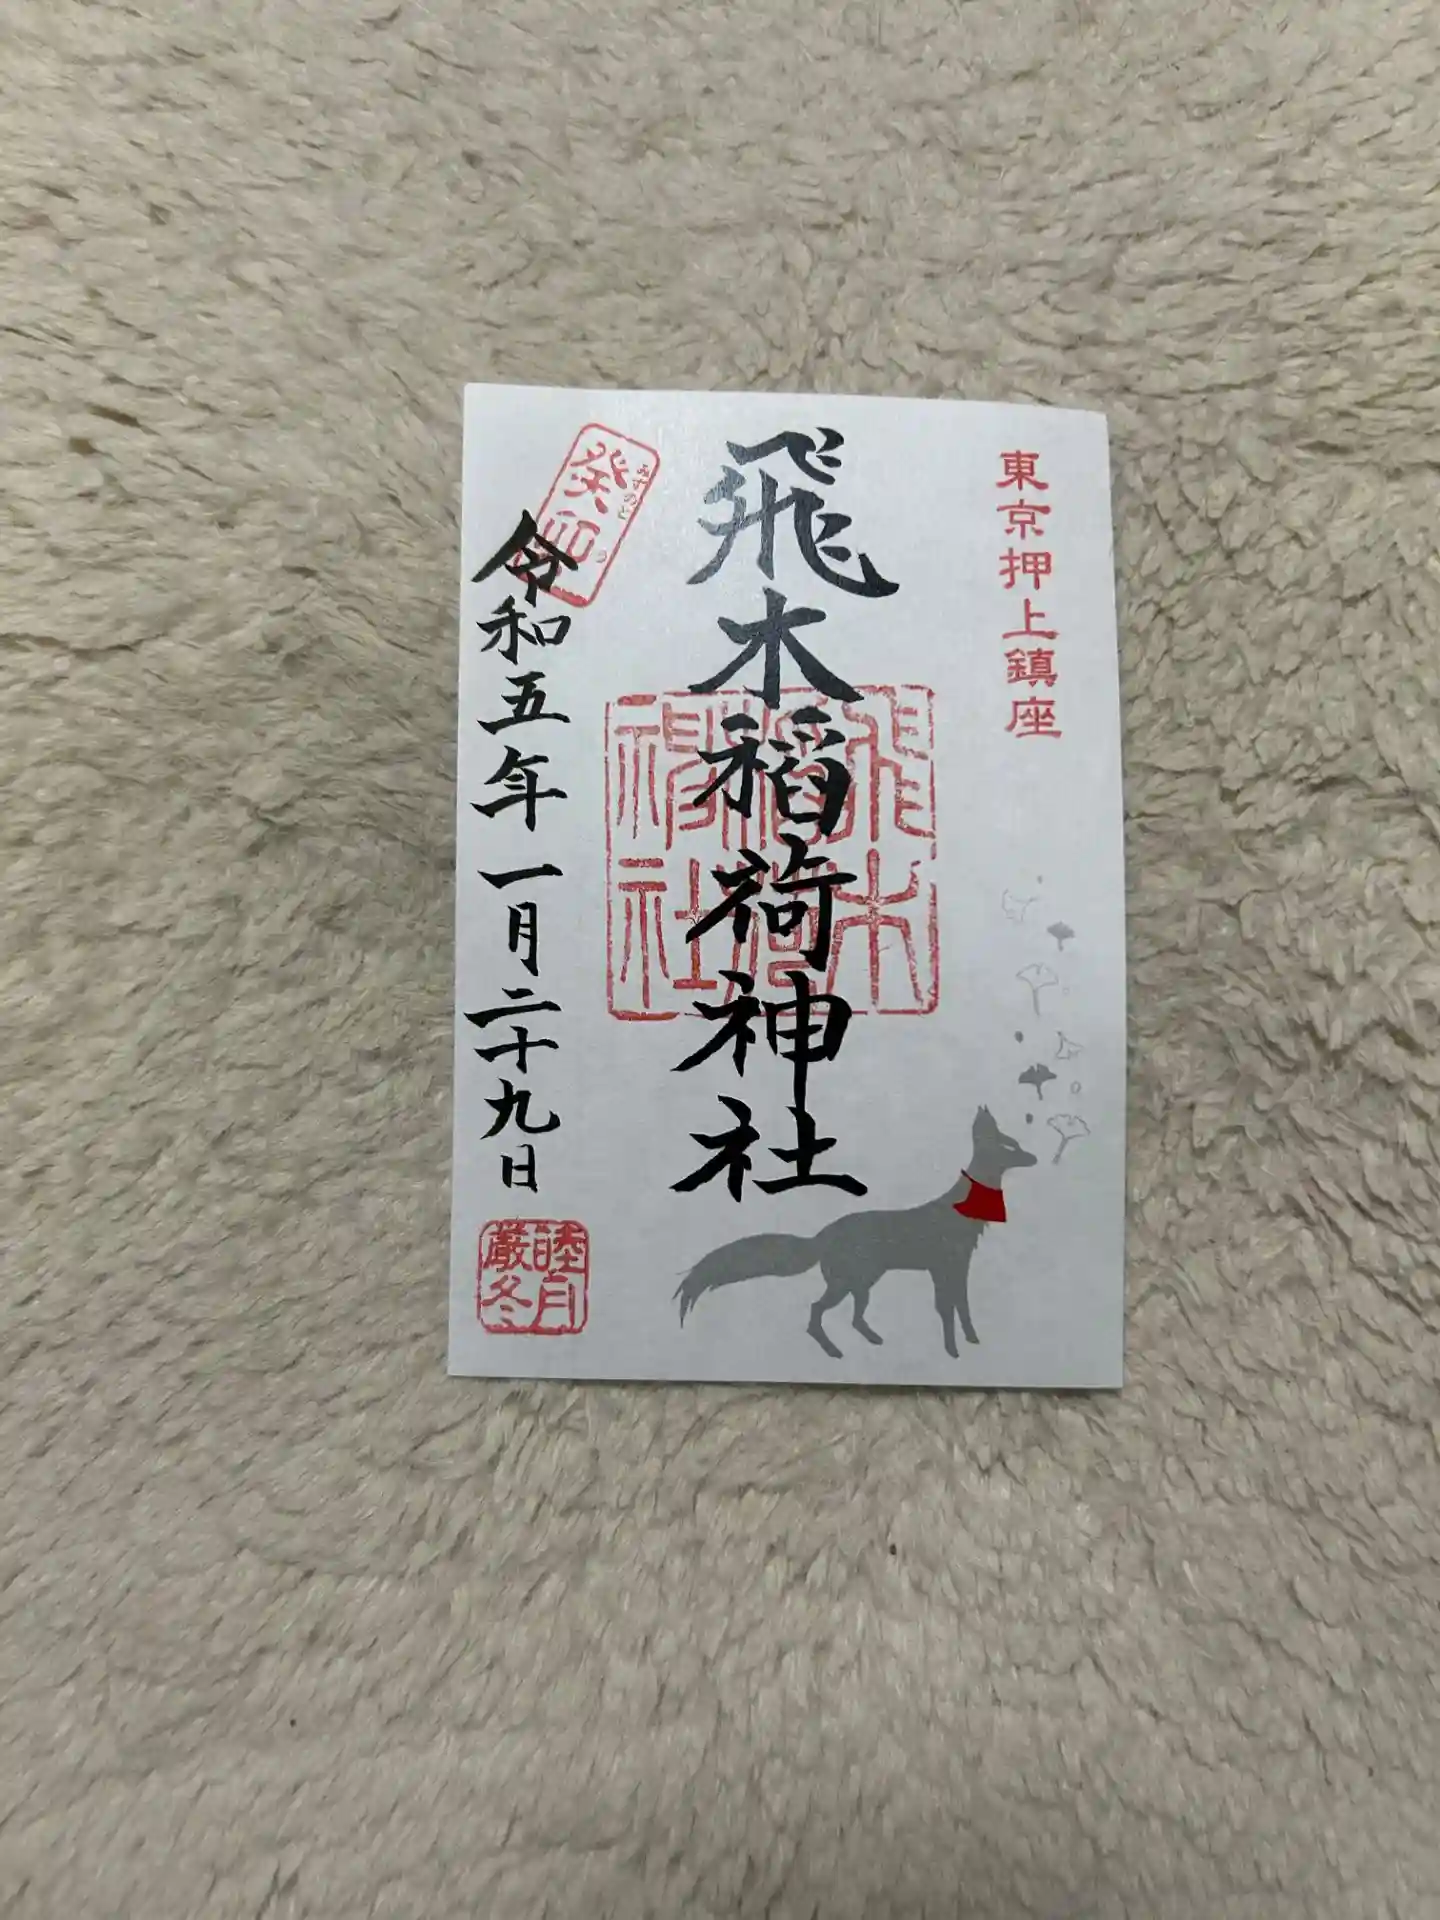 東京押上鎮座
飛木稲荷神社
飛木稲荷神社
癸卯
みずのと う
令和五年一月二十九日
睦月
厳冬